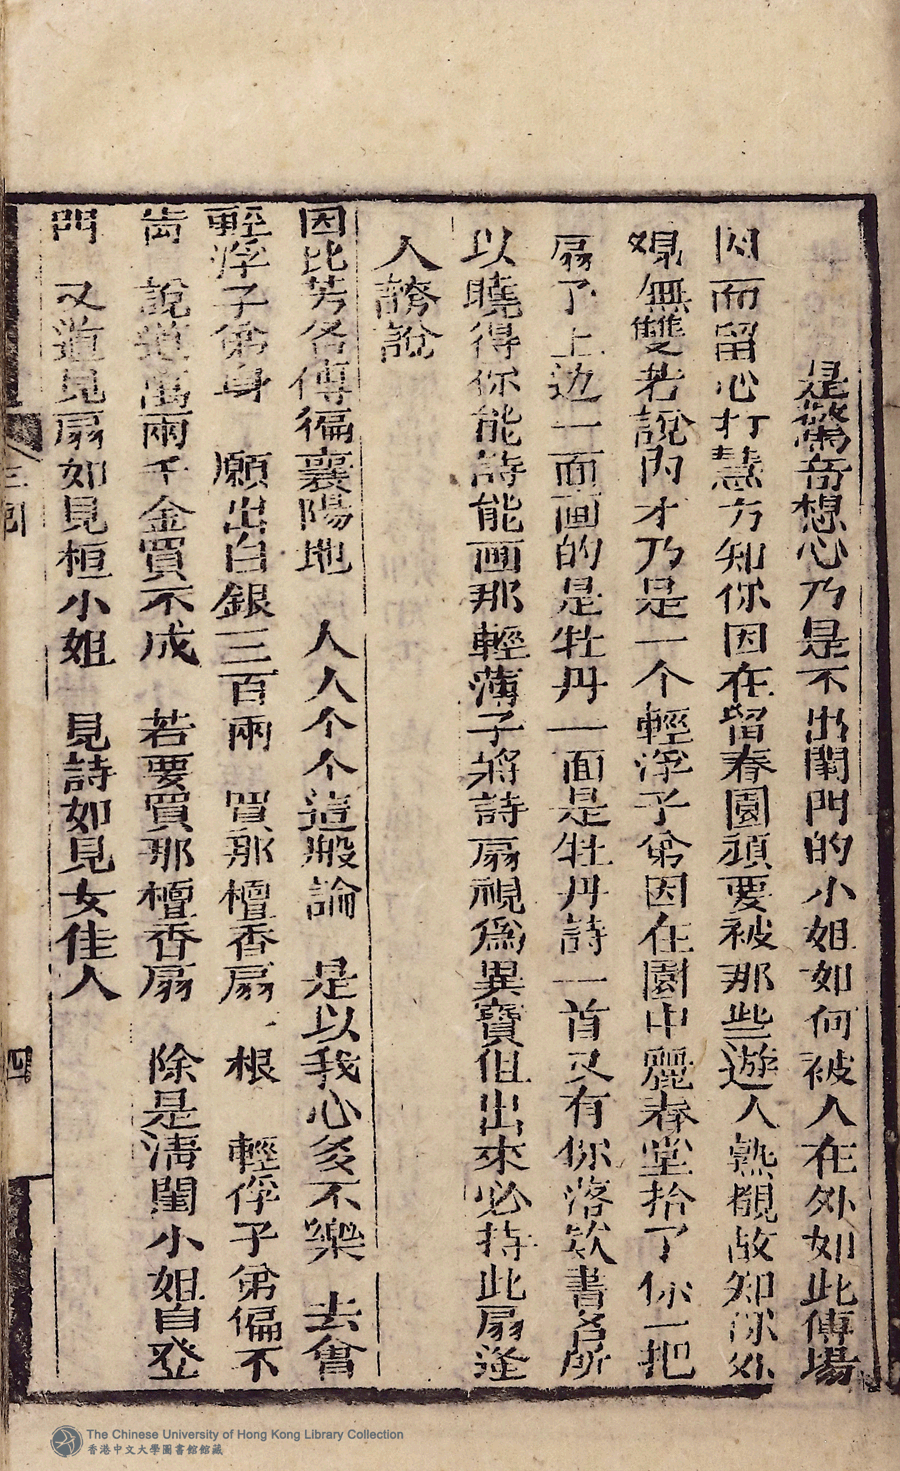 是驚奇想心乃是不出閨門的小姐如何被人在外如此傳場
因而留心打慧方知你因在留春園頑耍被那些遊人熟覩故知你外
覌無雙若說內才乃是一个輕浮子弟因在園中麗春堂拾了你一把
扇子上边一面画的是牡丹一面是牡丹詩一首又有你落欵書名所
以曉得你能詩能画那輕薄子將詩扇視爲異寶但出來必持此扇逢
人誇說
因此芳名傳徧襄陽地 人人个个這般論 是以我心多不樂 去會
輕浮子弟身 願出白銀三百兩 買那檀香扇一根 輕俘子弟偏不
肯 說道萬兩千金買不成 若要買那檀香扇 除是淸閨小姐自登
門 又道見扇如見桓小姐 見詩如見女佳人
四
The Chinese University of Hong Kong Library Collection
香港中文大學圖書館館藏